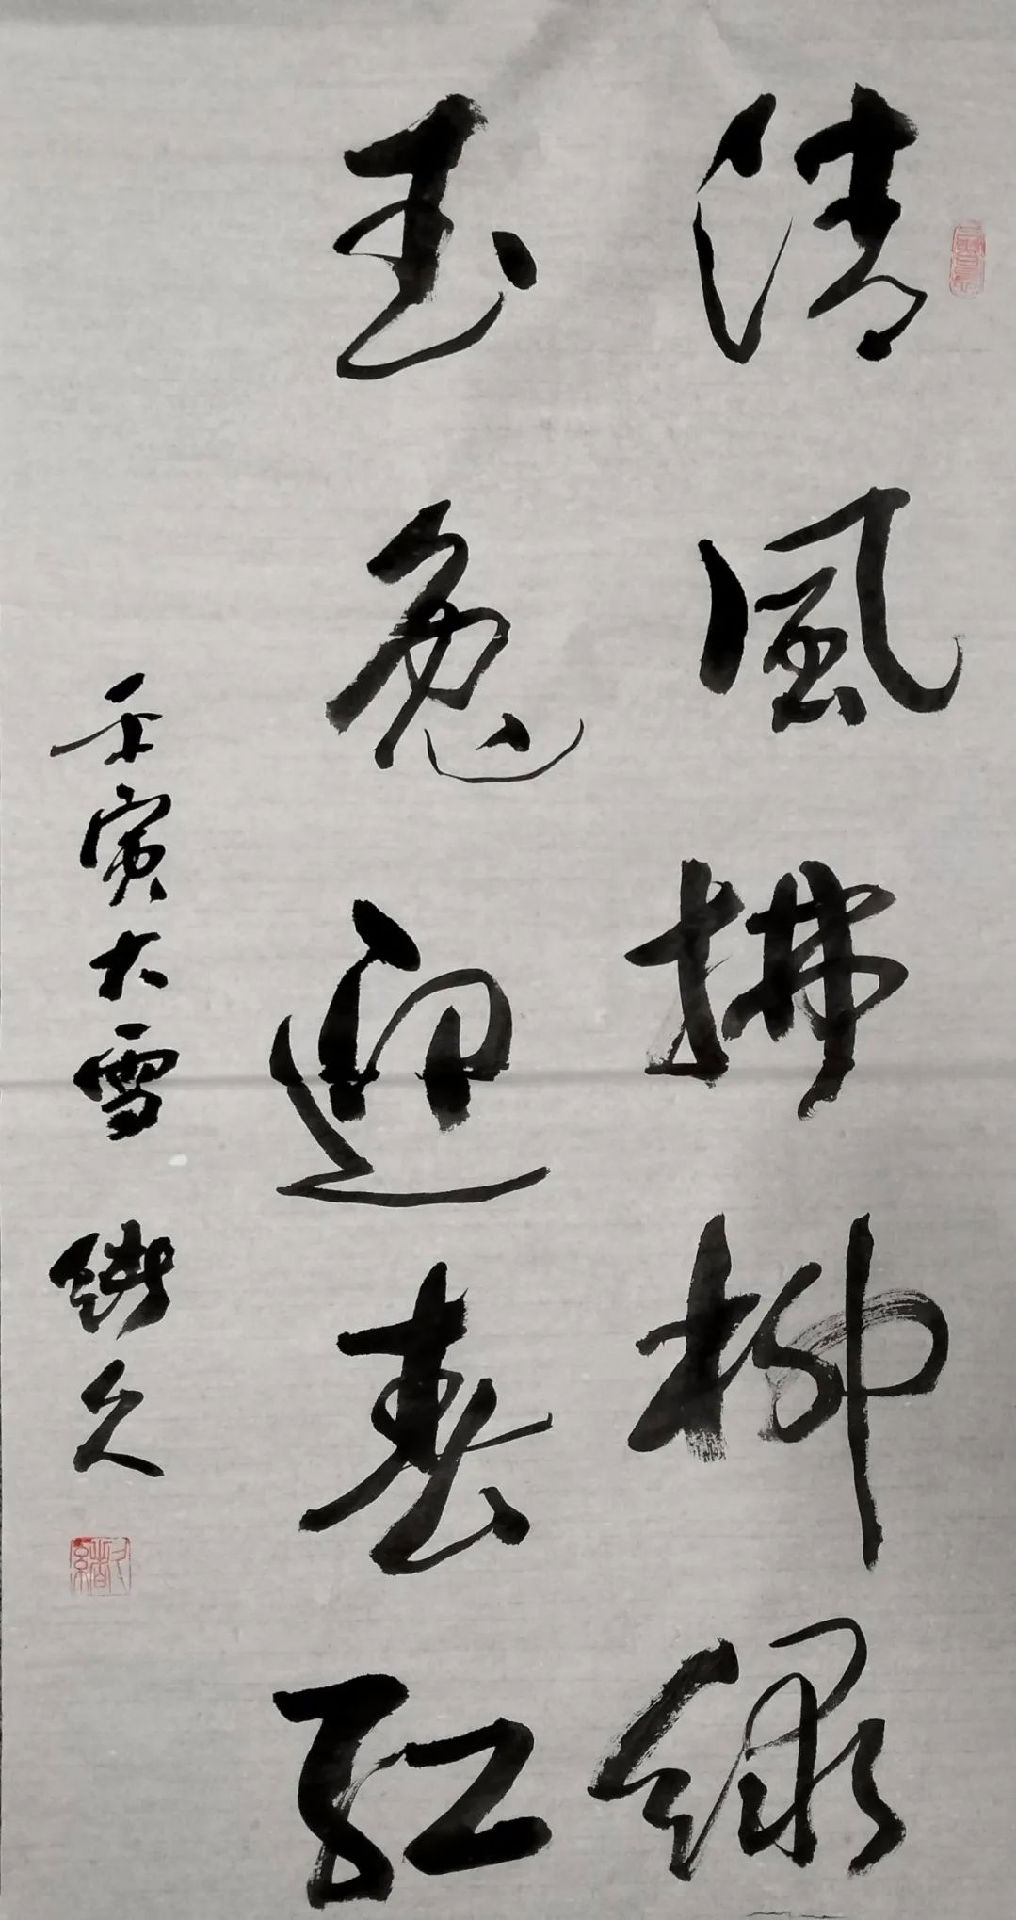 清風拂柳綠
玉兔迎春紅
壬寅大雪